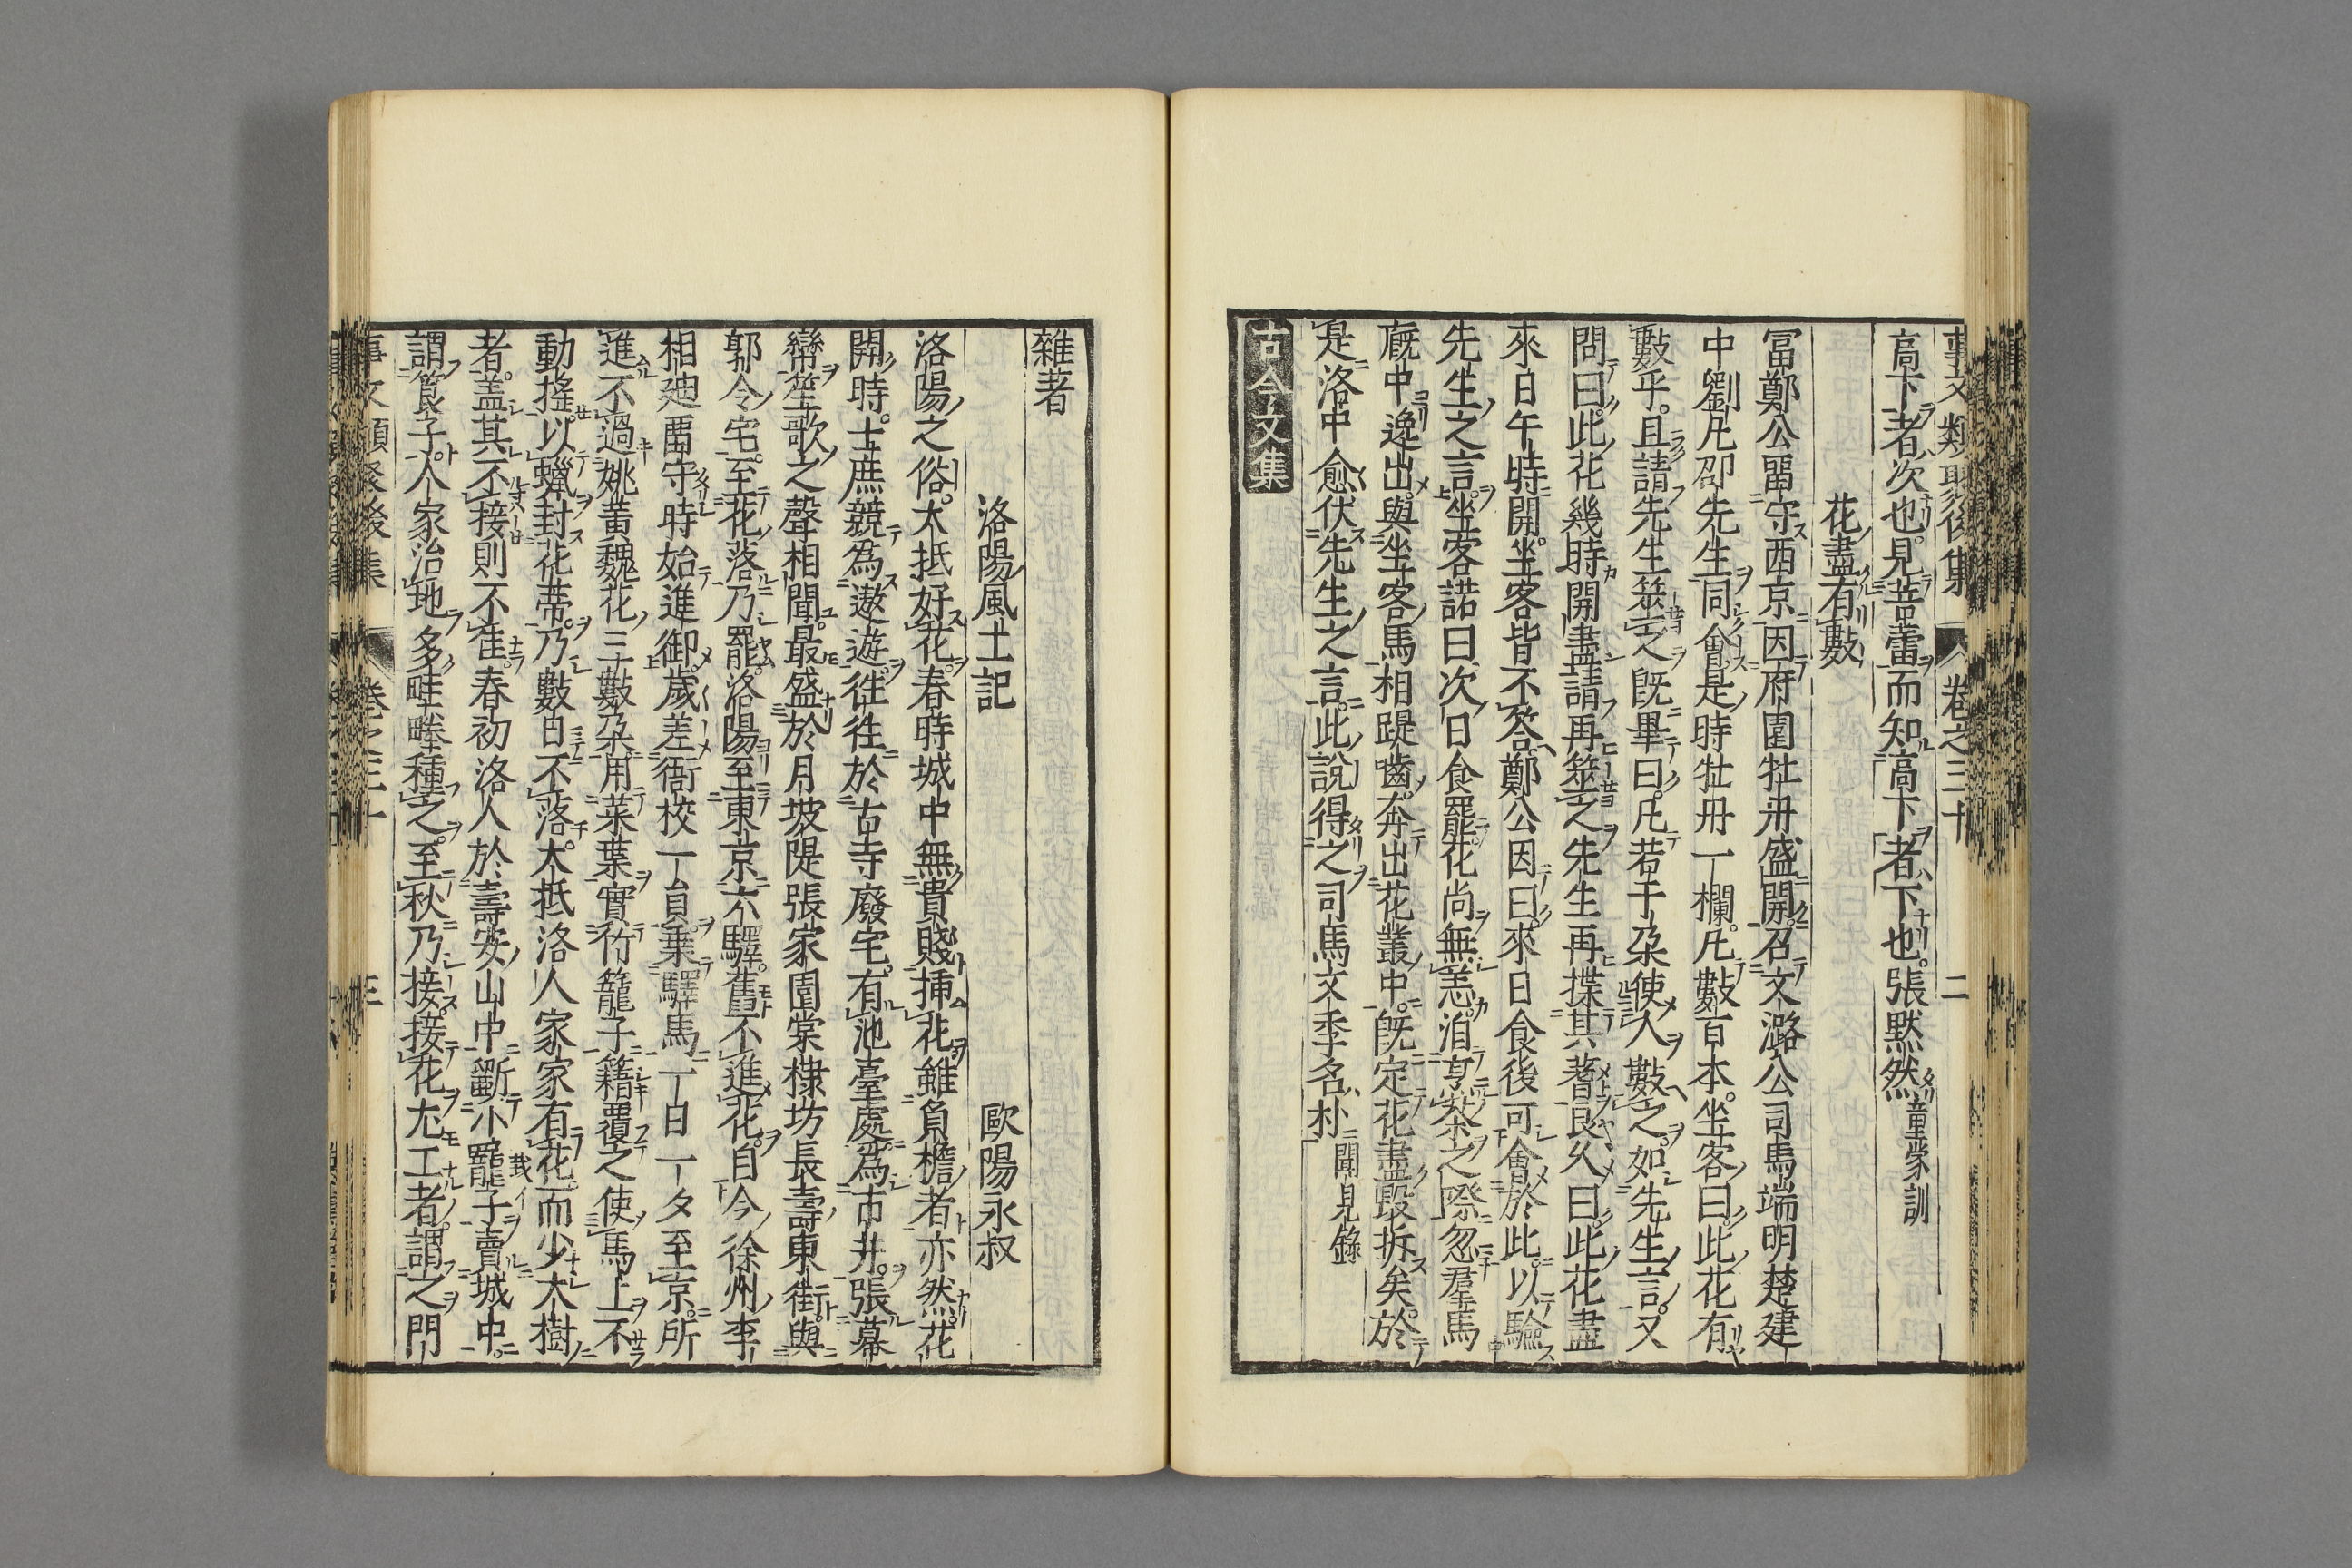 事文類聚後集 卷之三十 二
高下者次也見蓓蕾而知高下者下也張默然童蒙訓
花盡有數
冨鄭公畱守西京因府園牡丹盛開召文潞公司馬端明楚建
中劉凡卲先生同會是時牡丹一欄凡數百本坐客曰此花有
數乎且請先生筮之旣畢曰凡若干朶使人數之如先生言又
問曰此花幾時開盡請再筮之先生再揲其蓍良久曰此花盡
來日午時開坐客皆不答鄭公因曰來日食後可會於此以驗
先生之言坐客諾曰次日食罷花尚無恙洎亨茶之際忽羣馬
廐中逸出與坐客馬相踶嚙奔出花叢中旣定花盡毀拆矣於
是洛中愈伏先生之言此說得之司馬文季名朴聞見錄
古今文集
雜著
洛陽風土記 歐陽永叔
洛陽之俗大抵好花春時城中無貴賤揷花雖負檐者亦然花
開時士庶競爲遨遊徃徃於古寺廢宅有池臺處爲市井張幕
帟笙歌之聲相聞最盛於月坡隄張家園棠棣坊長壽東街與
郭令宅至花落乃罷洛陽至東京六驛舊不進花自今徐州李
相廸畱守時始進御歲差衙校一員乗驛馬一日一夕至京所
進不過姚黃魏花三數朶用菜葉實竹籠子籍覆之使馬上不
動搖以蠟封花蔕乃數日不落大抵洛人家家有花而少大樹
者盖其不接則不佳春初洛人於壽安山中斵小栽子賣城中
謂篦子人家治地多畦塍種之至秋乃接接花尤工者謂之門
事文類聚後集 卷之三十 三